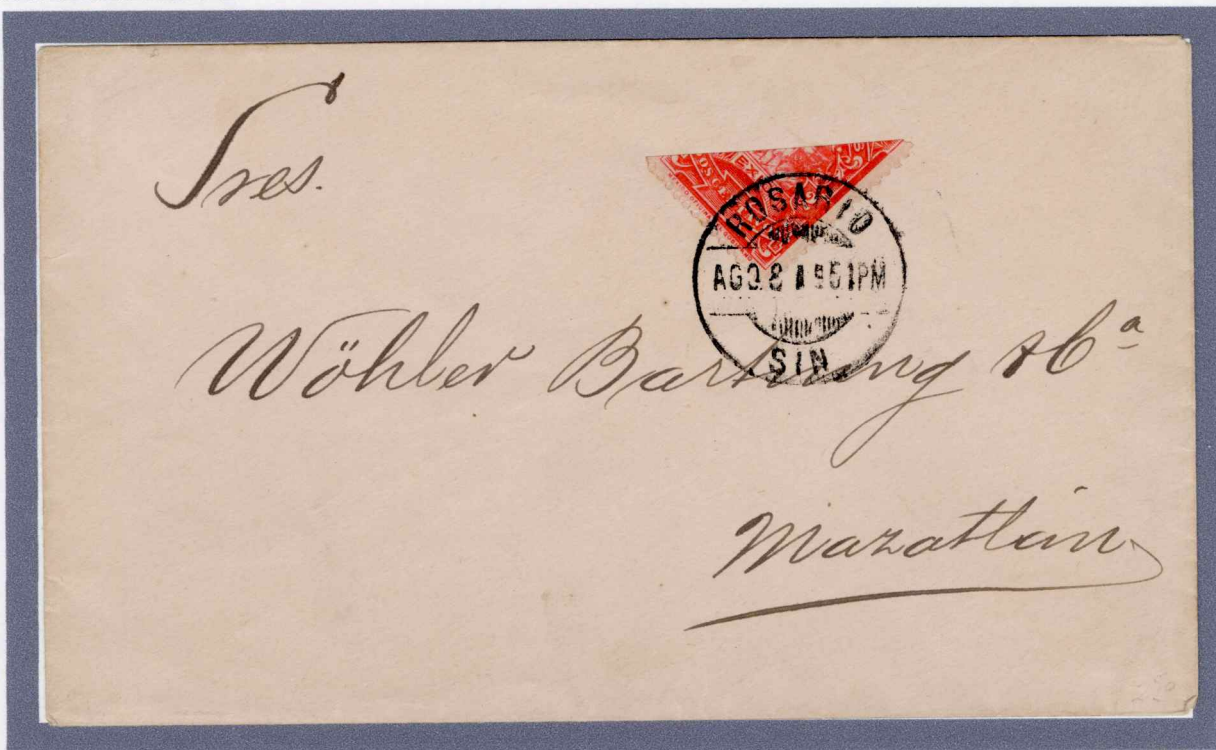 Sres.
ROSARIO
AGO 8 95 1PM
SIN
Wöhler Bartning & Cª
Mazatlán